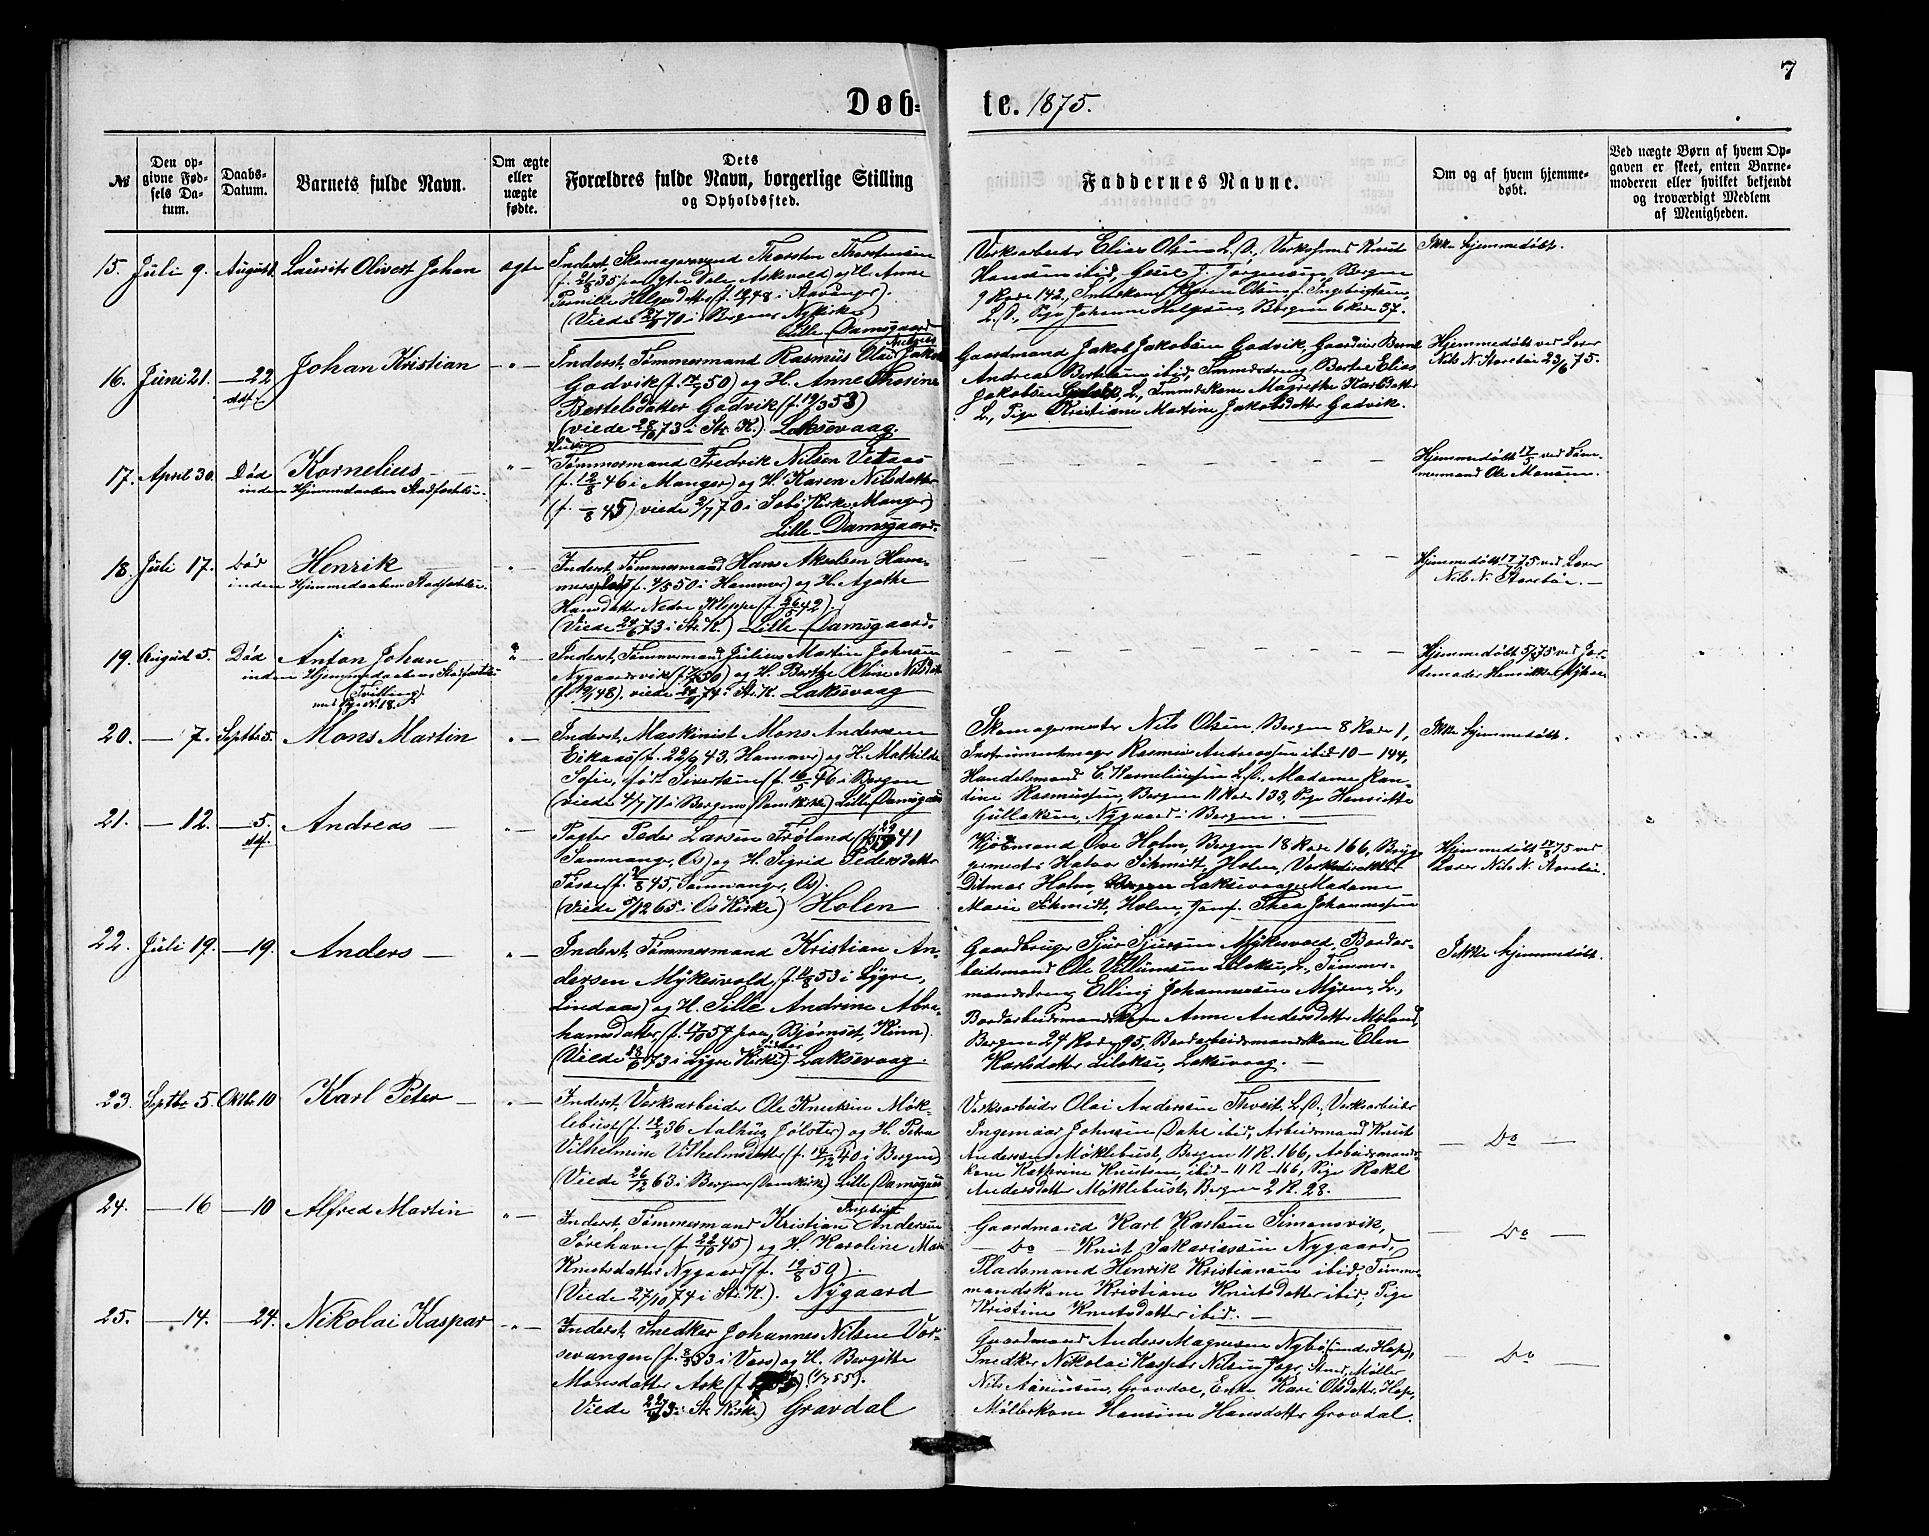 7
Døb-te. 1875.
№
Den opgivne Fødsels Datum.
Daabs-Datum.
Barnets fulde Navn.
Om ægte eller uægte fødte.
Dets Forældres fulde Navn, borgerlige Stilling og Opholdssted.
Faddernes Navne.
Om og af hvem hjemmedøbt.
Ved uægte Børn af hvem Opgaven er skeet, enten Barnemoderen eller hvilket bekjendt og troværdigt Medlem af Menigheden.
15. Juli 9. August Laurits Olivert Johan ægte
Inderst Skomagersvend Thorsten Thorstensen
Dalen Askvold) og H. Anne
i Stavanger).
(Viede 70 i Bergens Nykirke)
Lille Damsgaard
Verksarbeider Elias Olsen L. D., Knut
Hansen ibid, J. Jørgensen, Bergen
9 Rode 142, Olsen f. Ingebrigtsen,
L. D., Pige Johanne Helgesen, Bergen 6 Rode 37.
Ikke hjemmedøbt.
16. Juni 21. — 22 Johan Kristian — " —
Inderst, Tømmermand Rasmus Olai Andreas Jakobs
Gadvik (f. 50) og H. Anne Thorine
Bertelsdatter Gadvik (f. 19/3 53)
(viede 28/10 73 i Str. K.) Laksevaag.
Gaardmand Jakob Jakobsen Gadvik, Bernt
Andreas Berthsen ibid, Elias
Jakobsen L., Magrethe Karlsdatter
L., Pige Kristiane Martine Jakobsdatter Gadvik.
Hjemmedøbt ved Lærer
Nils N. Storebøe 23/6 75.
17. April 30. Død Kornelius — " —
inden Hjemmedaabens Stadfæstelse.
Tømmermand Fredrik Nilsen Vetaas
(f. 12/8 46 i Manger) og H. Karen Nilsdatter
(f. 45) viede 2/7 70 i Sæbø Kirke, Manger)
Lille Damsgaard.
Hjemmedøbt 17/5 ved Tømmermand Ole Monsen.
18. Juli 17. Død Henrik — " —
inden Hjemmedaabens Stadfæstelse.
Inderst, Tømmermand Hans Akselsen Hammersland
(f. 4/5 50 i Hammer) og H. Agathe
Hansdatter Nedre Kleppe (f. 26/5 42).
(Viede 24/6 73 i Str. K.) Lille Damsgaard.
Hjemmedøbt 75 ved Lærer
Nils N. Storebøe.
19. August 5. Død Anton Johan — " —
inden Hjemmedaabens Stadfæstelse
(Tvilling)
Inderst, Tømmermand Julius Martin Johnsen
Nygaardsvik og H. Berthe Oline Nilsdatter
(f. 48), viede 74 i Str. K. Laksevaag
Hjemmedøbt 5/8 75 ved Jordemoder
20. — 7. Septbr 5. Mons Martin — " —
Inderst, Maskinist Mons Andersen
Eikaas (f. 22/9 43, Hammer) og H. Mathilde
Sofie, født Sivertsen (f. 16/5 46 i Bergen
(viede 4/7 71 i Bergens Domkirke) Lille Damsgaard
Skomagermester Nils Olsen, Bergen 8 Rode 1,
Instrumentmager Rasmus Andreassen ibid 10 — 144,
Handelsmand C. Korneliussen L. D., Madame Randine
Rasmussen, Bergen 11 Rode 133, Pige Henriette
Gullaksen, Nygaard i Bergen. —
Ikke hjemmedøbt.
21. — 12. — 5. Andreas — " —
Pagter Peder Larsen Frøland 41
Sammanger, Os) og H. Sigrid Pedersdatter
Tøsse (f. 2/8 45, Sammanger, Os).
(Viede 5/12 65 i Os Kirke) Holen
Kjøbmand Ove Holm, Bergen 18 Rode 166, Bryggermester
Halvor Schmidt, Holen, Verksdirektør
Ditmar Holm, Laksevaag, Madame
Marie Schmidt, Holen, Jomf. Thea Johannessen
Hjemmedøbt 17/8 75 ved
Lærer Nils N. Storebøe.
22. Juli 19. — 19. Anders — " —
Inderst, Tømmermand Kristian Andersen
Mykesvold, f. 14/8 53 i Lygre,
Lindaas) og H. Sille Andrine Abrahamsdatter
(f. 57 fra Bjørnset, Kinn).
(Viede 13/6 73 i Lygre Kirke) Laksevaag.
Gaardbruger Sjur Sjursen Mykesvold, Bordarbeidsmand
Ole Villumsen Liloksi, L., Tømmermandsdreng
Elling Johannessen Myren, L.,
Bordarbeidsmandskone Anne Andersdatter Moland,
Bergen 24 Rode 95, Bordarbeidsmandskone Elen
Karlsdatter Liloksi, Laksevaag. —
Ikke hjemmedøbt.
23. Septbr 5. Oktbr 10 Karl Peter — " —
Inderst, Verksarbeider Ole Knutsen Møklebust
(f. 12/2 36 Aalhus, Jølster) og H. Petra
Vilhelmine Vilhelmsdatter (f. 14/2 40 i Bergen)
(Viede 26/12 63 i Bergens Domkirke) Lille Damsgaard
Verksarbeider Olai Andersen Thveit, L. D., Verksarbeider
Ingemaar Johnsen Dahl ibid, Arbeidsmand Knut
Andersen Møklebust, Bergen 11 R. 166, Arbeidsmandskone
Kathrine Knutsen, ibid — 11 R — 166, Pige Rakel
Andersdatter Møklebust, Bergen 2 R. 28.
— Do —
24. — 16 — 10 Alfred Martin — " —
Inderst, Tømmermand Kristian Ingebrigt Andersen
Sørehavn (f. 22/10 45) og H. Karoline Marie
Knutsdatter Nygaard (f. 19/8 50).
(Viede 27/10 74 i Str. K.). Nygaard
Gaardmand Karl Karlsen Simonsvik,
— Do — Knut Sakariassen Nygaard,
Pladsmand Henrik Kristiansen ibid, Tømmermandskone
Kristiane Knutsdatter ibid, Pige
Kristine Knutsdatter ibid. —
— Do —
25. — 14. — 24. Nikolai Kaspar — " —
Inderst, Snedker Johannes Nilsen Vorsevangen
(f. 53 i Vors) og H. Bergitte
Monsdatter Ask (55).
Viede 73 i Str. Kirke) Gravdal
Gaardmand Anders Magnesen Nybø (under Hop),
Snedker Nikolai Kaspar Nilsen, Møller
Nils Gravdal, Enke Kari Olsdatter, Hop,
Møllerkone Hansine Hansdatter Gravdal.
— Do —